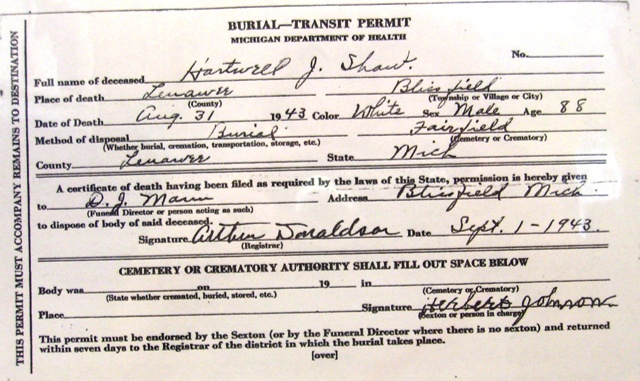 THIS PERMIT MUST ACCOMPANY REMAINS TO DESTINATION
BURIAL—TRANSIT PERMIT
MICHIGAN DEPARTMENT OF HEALTH
No.
Full name of deceased Hartwell J. Shaw.
Place of death Lenawee Blissfield
(County) (Township or Village or City)
Date of Death Aug. 31 1943 Color White Sex Male Age 88
Method of disposal Burial Fairfield
(Whether burial, cremation, transportation, storage, etc.) (Cemetery or Crematory)
County Lenawee State Mich
A certificate of death having been filed as required by the laws of this State, permission is hereby given
to D. J. Mann Address Blissfield Mich.
(Funeral Director or person acting as such)
to dispose of body of said deceased.
Signature Arthur Donaldson Date Sept. 1-1943.
(Registrar)
CEMETERY OR CREMATORY AUTHORITY SHALL FILL OUT SPACE BELOW
Body was on 19 in
(State whether cremated, buried, stored, etc.) (Cemetery or Crematory)
Place Signature Herbert Johnson
(Sexton or person in charge)
This permit must be endorsed by the Sexton (or by the Funeral Director where there is no sexton) and returned
within seven days to the Registrar of the district in which the burial takes place.
[over]